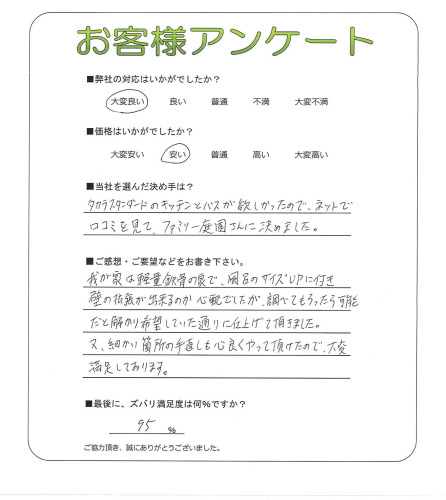 お客様アンケート
■弊社の対応はいかがでしたか？
大変良い 良い 普通 不満 大変不満
■価格はいかがでしたか？
大変安い 安い 普通 高い 大変高い
■当社を選んだ決め手は？
タカラスタンダードのキッチンとバスが欲しかったので、ネットで
口コミを見て、ファミリー庭園さんに決めました。
■ご感想・ご要望などをお書き下さい。
我が家は軽量鉄骨の家で、風呂のサイズUPに付き
壁の拡張が出来るのか心配でしたが、調べてもらったら可能
だと解かり希望していた通りに仕上げて頂きました。
又、細かい箇所の手直しも心良くやって頂けたので、大変
満足しております。
■最後に、ズバリ満足度は何%ですか？
95 %
ご協力頂き、誠にありがとうございました。